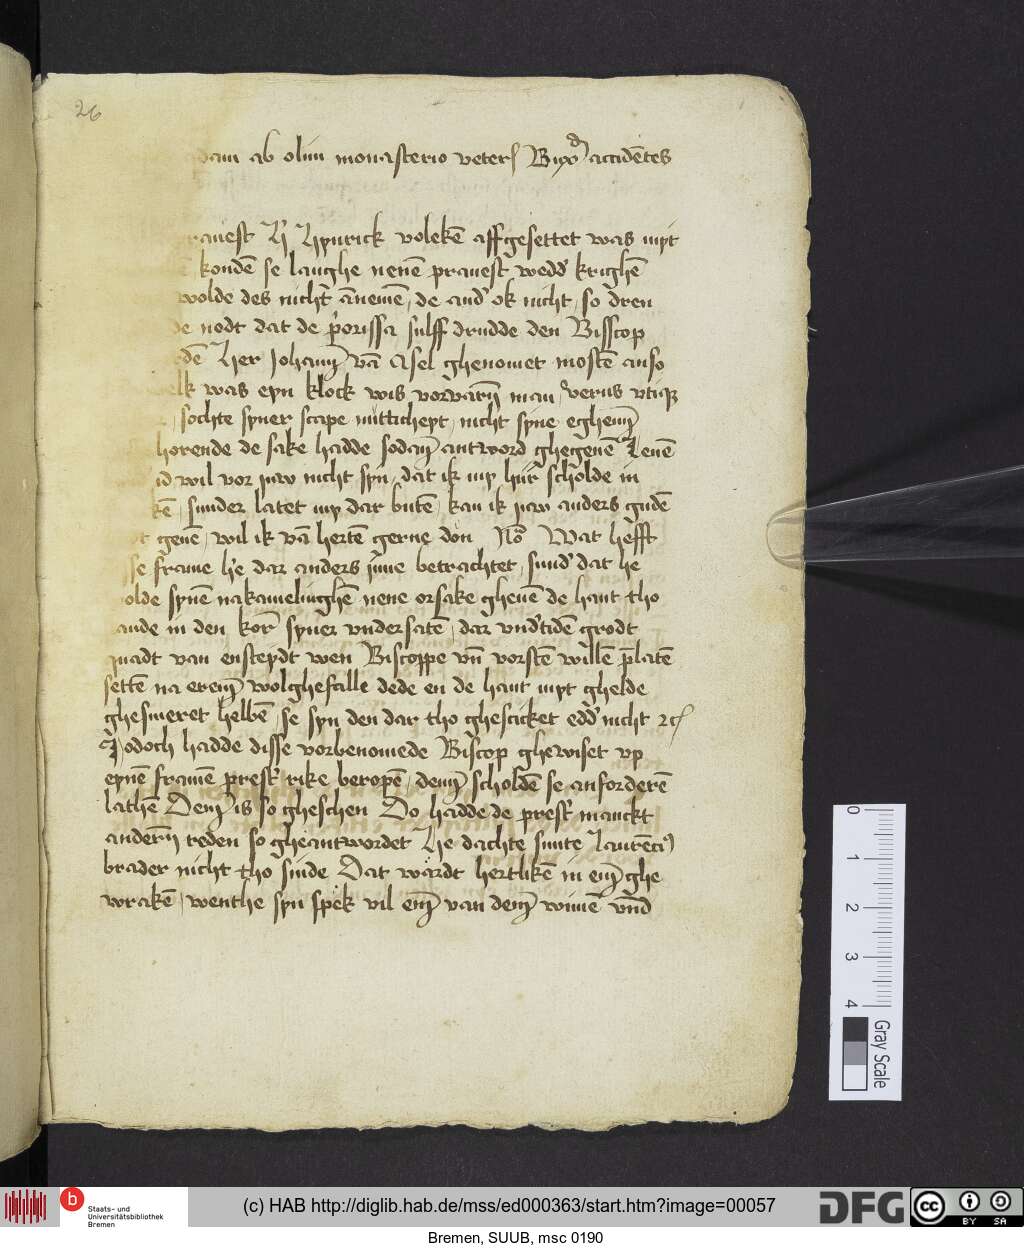 26
ab olim monasterio veter Buxd accidētes
ravest H Hynrick volckē affgesettet was myt
kondē se langhe nenē pravest wedd krighē
wolde des nicht ānemē, de and ok nicht, so dren
de nodt dat de priorissa sulff drudde den Bisscop
dē Her Johan vā Asel ghenomet mostē anso
elk was eyn klock wis vorvarn man, verus vtique
sochte syner scape nutticheyt, nicht syne eghem
horende de sake hadde sodan antword ghegenē Leuē
id wil vor juw nicht syn, dat ik my hir scholde in
kē, sunder latet my dar butē, kan ik juw anders gudē
t geuē, wil ik vā hertē gerne don No Wat hefft
sse frame he dar anders jnne betrachtet, sund dat he
olde synē nakamelinghē nene orsake gheuē de hant tho
ande in den kor syner vndersatē, dar vndtidē grodt
quadt van ensteydt wen Biscoppe vn vorstē willē p̄latē
settē na erem wolghefalle dede en de hant myt ghelde
ghesmeret hebbē, se syn den dar tho ghescicket edd nicht 2c
Jodoch hadde disse vorbenomede Biscop ghewiset vp
eynē framē prest rike beropē, dem scholdē se anforderē
lathē Dem is so gheschen Do hadde de prest manckt
andern reden so gheantwordet He dachte sunte Laurēcius
brader nicht tho sinde Dat wardt hertlikē in em ghe
wrakē, wenthe syn spek vil em van dem wimē vnd
0
1
2
3
4
Gray Scale
b Staats- und
Universitätsbibliothek
Bremen
(c) HAB http://diglib.hab.de/mss/ed000363/start.htm?image=00057
DFG
cc BY SA
Bremen, SUUB, msc 0190